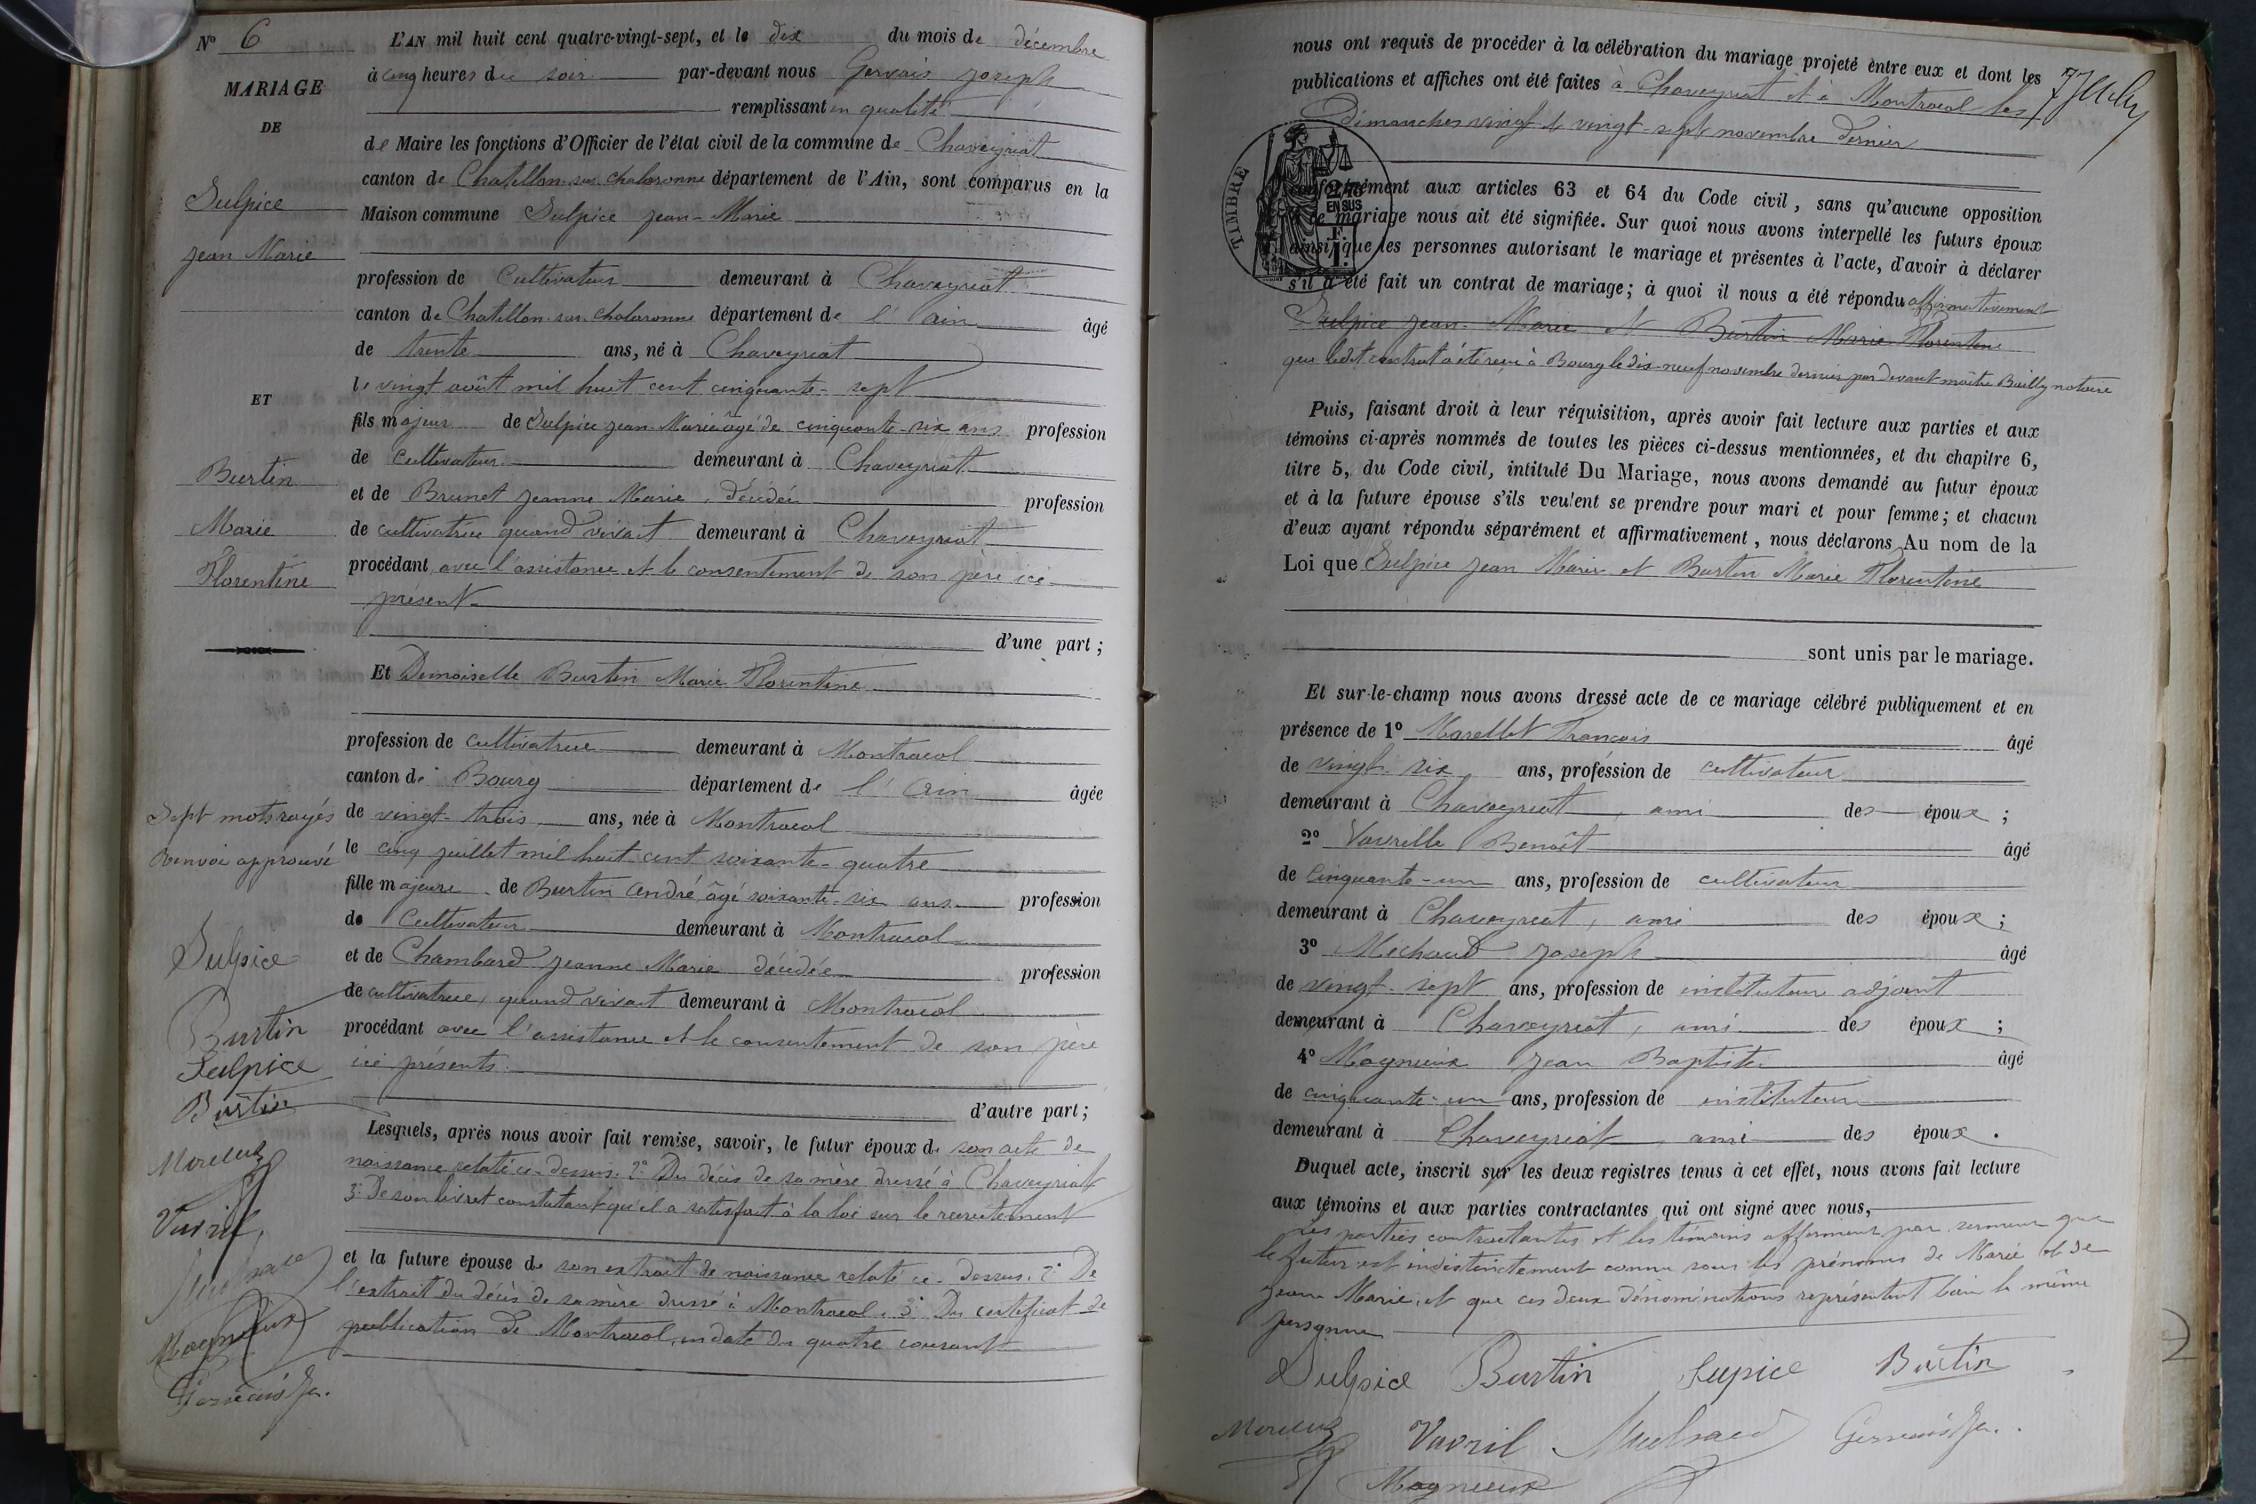 N° 6
MARIAGE
DE
Sulpice
Jean Marie
ET
Burtin
Marie
Florentine
Sept mots rayés
Renvoi approuvé
Sulpice
Burtin
Sulpice
Burtin
Vavril
Magnieux
Gervais J.
L'AN mil huit cent quatre-vingt-sept, et le dix du mois de décembre
à cinq heures du soir par-devant nous Gervais Joseph
remplissant en qualité
de Maire les fonctions d'Officier de l'état civil de la commune de Chaveyriat
canton de Chatillon-sur-chalaronne département de l'Ain, sont comparus en la
Maison commune Sulpice Jean-Marie
profession de Cultivateur demeurant à Chaveyriat
canton de Chatillon-sur-chalaronne département de l'Ain âgé
de trente ans, né à Chaveyriat
le vingt août mil huit cent cinquante-sept
fils majeur de Sulpice Jean-Marie âgé de cinquante-six ans profession
de Cultivateur demeurant à Chaveyriat
et de Brunet Jeanne Marie, décédée profession
de cultivatrice quand vivait demeurant à Chaveyriat
procédant avec l'assistance et le consentement de son père ici
présent
d'une part ;
Et Demoiselle Burtin Marie Florentine
profession de cultivatrice demeurant à Montracol
canton de Bourg département de l'Ain âgée
de vingt-trois ans, née à Montracol
le cinq juillet mil huit cent soixante-quatre
fille majeure de Burtin André âgé soixante-six ans profession
de Cultivateur demeurant à Montracol
et de Chambard Jeanne Marie décédée profession
de cultivatrice, quand vivait demeurant à Montracol
procédant avec l'assistance et le consentement de son père
ici présents.
d'autre part ;
Lesquels, après nous avoir fait remise, savoir, le futur époux de son acte de
naissance relaté ci-dessus. 2° Du décès de sa mère dressé à Chaveyriat
3° De son livret constatant qu'il a satisfait à la loi sur le recrutement
et la future épouse de son extrait de naissance relaté ci-dessus. 2° De
l'extrait du décès de sa mère dressé à Montracol. 3° Du certificat de
publication de Montracol, en date du quatre courant
nous ont requis de procéder à la célébration du mariage projeté entre eux et dont les
publications et affiches ont été faites à Chaveyriat et à Montracol les
Dimanches vingt et vingt-sept novembre dernier
TIMBRE
EN SUS
conformément aux articles 63 et 64 du Code civil, sans qu'aucune opposition
à ce mariage nous ait été signifiée. Sur quoi nous avons interpellé les futurs époux
ainsi que les personnes autorisant le mariage et présentes à l'acte, d'avoir à déclarer
s'il a été fait un contrat de mariage ; à quoi il nous a été répondu affirmativement
Sulpice Jean-Marie et Burtin Marie Florentine
que ledit contrat a été reçu à Bourg le dix-neuf novembre dernier par devant maître Bailly notaire
Puis, faisant droit à leur réquisition, après avoir fait lecture aux parties et aux
témoins ci-après nommés de toutes les pièces ci-dessus mentionnées, et du chapitre 6,
titre 5, du Code civil, intitulé Du Mariage, nous avons demandé au futur époux
et à la future épouse s'ils veulent se prendre pour mari et pour femme ; et chacun
d'eux ayant répondu séparément et affirmativement, nous déclarons Au nom de la
Loi que Sulpice Jean Marie et Burtin Marie Florentine
sont unis par le mariage.
Et sur-le-champ nous avons dressé acte de ce mariage célébré publiquement et en
présence de 1° François âgé
de vingt-six ans, profession de cultivateur
demeurant à Chaveyriat, ami des époux ;
2° Benoît âgé
de Cinquante-un ans, profession de cultivateur
demeurant à Chaveyriat, ami des époux ;
3° Michaud Joseph âgé
de vingt-sept ans, profession de instituteur adjoint
demeurant à Chaveyriat, ami des époux ;
4° Magnieux Jean Baptiste âgé
de cinquante-un ans, profession de instituteur
demeurant à Chaveyriat ami des époux.
Duquel acte, inscrit sur les deux registres tenus à cet effet, nous avons fait lecture
aux témoins et aux parties contractantes qui ont signé avec nous,
Les parties contractantes et les témoins affirment par serment que
le futur est indistinctement connu sous les prénoms de Marie et de
Jean Marie, et que ces deux dénominations représentent bien la même
personne
Sulpice Burtin Supice Burtin
Vavril Michaud Gervais J.
Magnieux